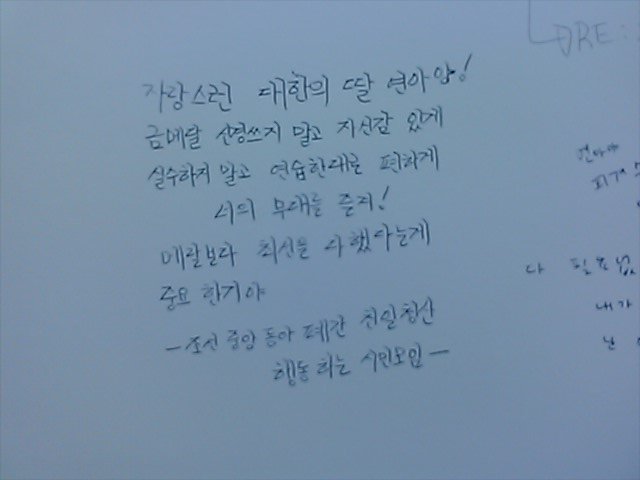 DRE:
자랑스런 대한의 딸 연아양!
금메달 신경쓰지 말고 자신감 있게
실수하지 말고 연습한대로 편하게
너의 무대를 즐겨!
메달보다 최선을 다했다는게
중요 한거야
- 조선 중앙 동아 폐간 친일청산
행동 하는 시민모임 -
다 필요없
내가
난